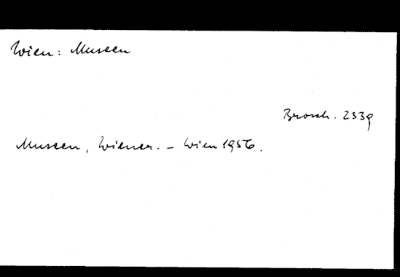 Wien: Museen
Brosch. 2339
Museen, Wiener. – Wien 1956.